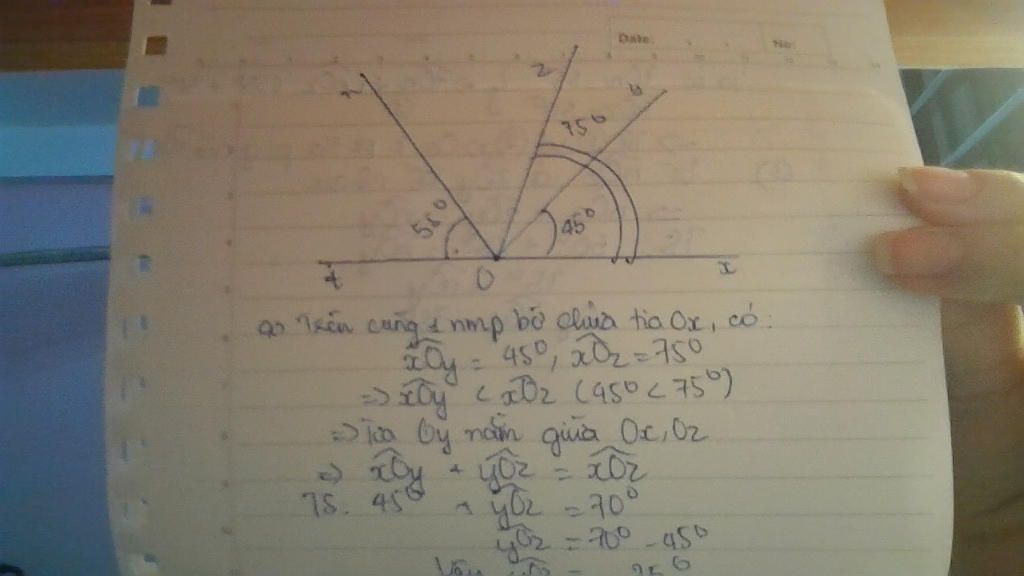 Date: No:
z
y
n
75°
55°
45°
t O x
a) Trên cùng 1 nmp bờ chứa tia Ox, có:
xÔy = 45°, xÔz = 75°
=> xÔy < xÔz (45° < 75°)
=> Tia Oy nằm giữa Ox, Oz
=> xÔy + yÔz = xÔz
TS. 45° + yÔz = 70°
yÔz = 70° - 45°
Vậy = 25°